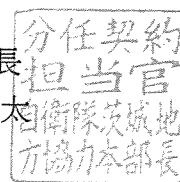 長
太
分任契約
担当官
自衛隊茨城地
方協力本部長